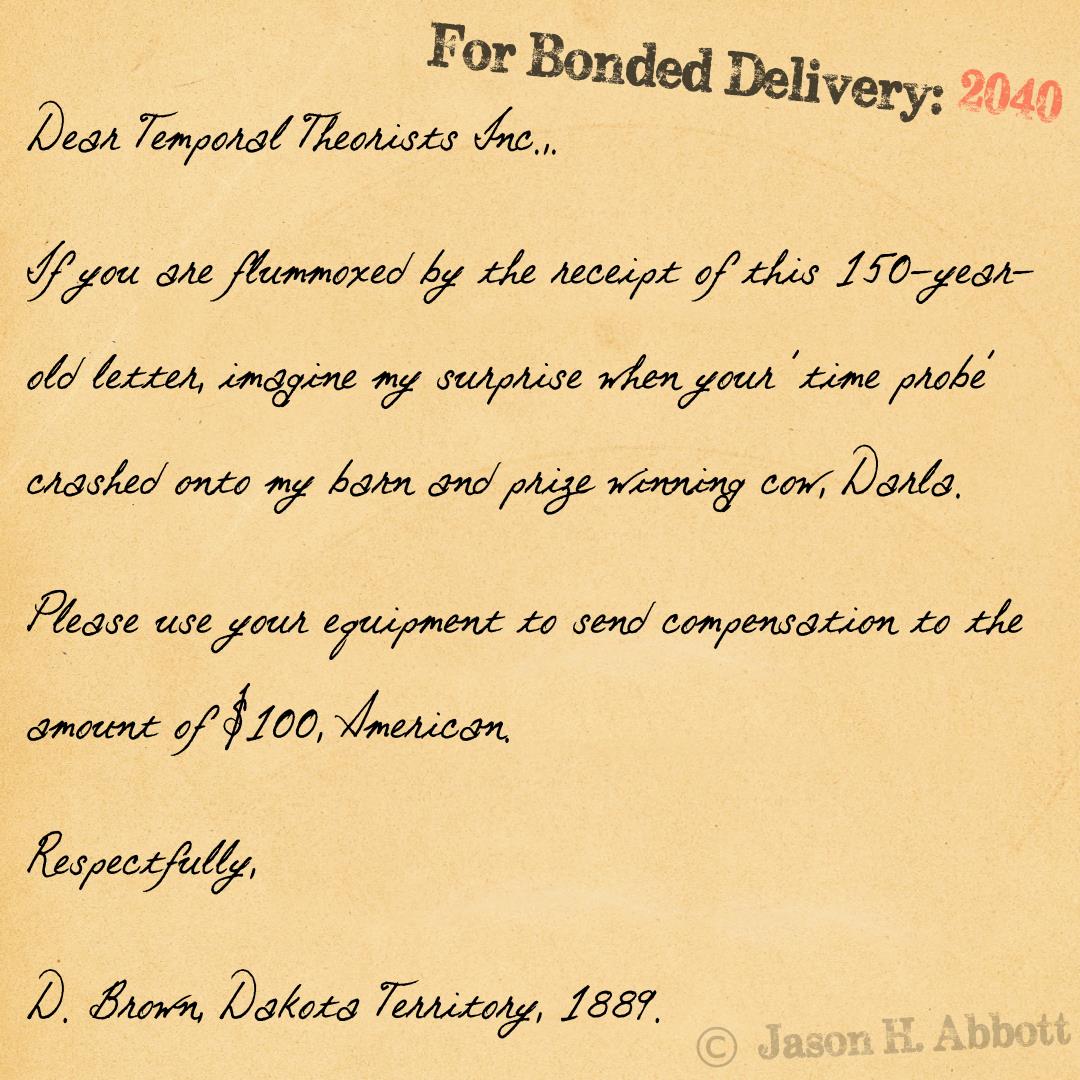 For Bonded Delivery: 2040
Dear Temporal Theorists Inc...
If you are flummoxed by the receipt of this 150-year-
old letter, imagine my surprise when your 'time probe'
crashed onto my barn and prize winning cow, Darla.
Please use your equipment to send compensation to the
amount of $100, American.
Respectfully,
D. Brown, Dakota Territory, 1889.
© Jason H. Abbott